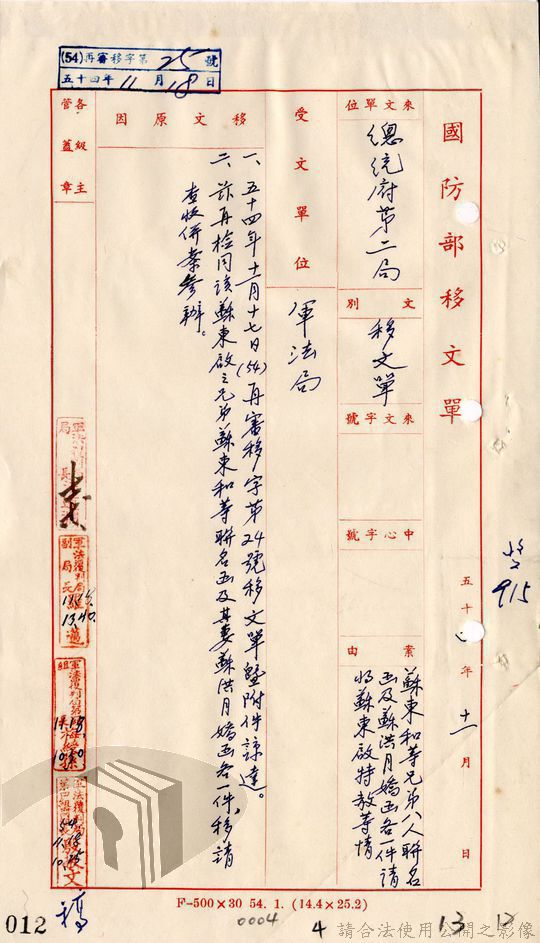 (54)再審移字第25號
五十四年11月18日
國防部移文單
來文單位
總統府第二局
文別
移文單
來文字號
中心字號
案由
蘇東和等兄弟八人聯名
函及蘇洪月嬌函各一件請
將蘇東啟特赦等情
五十 年十一月 日
受文單位
軍法局
移文原因
一、五十四年十一月十七日(54)再審移字第24號移文單暨附件諒達。
二、茲再檢同該蘇東啟之兄弟蘇東和等聯名函及其妻蘇洪月嬌函各一件,移請
查收併案參辦。
各級主管蓋章
915
F-500×30 54. 1. (14.4×25.2)
012
稿
0004
4
13
請合法使用公開之影像